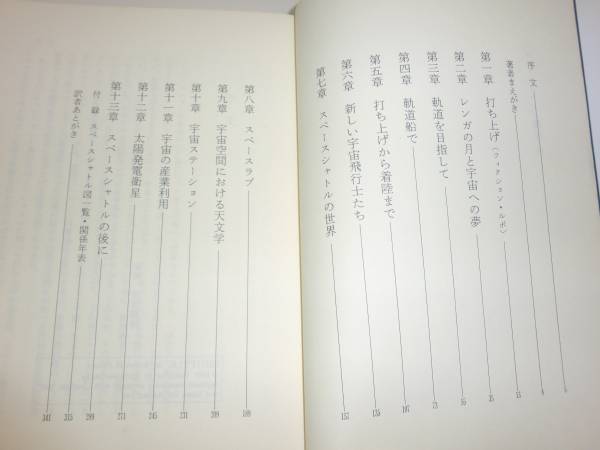 序文
著者まえがき
第一章 打ち上げ〈フィクション・ルポ〉 13
第二章 レンガの月と宇宙への夢
第三章 軌道を目指して
第四章 軌道船で 73
第五章 打ち上げから着陸まで 107
第六章 新しい宇宙飛行士たち 135
第七章 スペースシャトルの世界 157
第八章 スペースラブ 189
第九章 宇宙空間における天文学 209
第十章 宇宙ステーション 231
第十一章 宇宙の産業利用 245
第十二章 太陽発電衛星 271
第十三章 スペースシャトルの後に 299
付録 スペースシャトル図一覧・関係年表 315
訳者あとがき 341